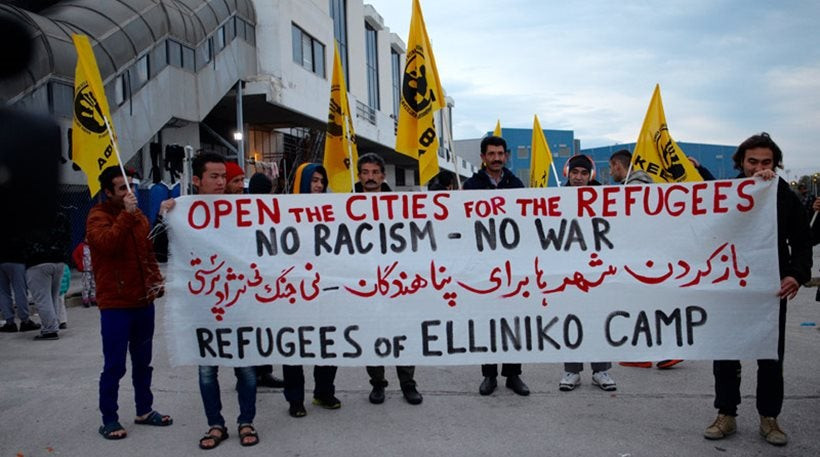 OPEN THE CITIES FOR THE REFUGEES
NO RACISM - NO WAR
باز کردن شهر ها برای پناهندگان - نی جنگ نی نژاد پرستی
REFUGEES OF ELLINIKO CAMP